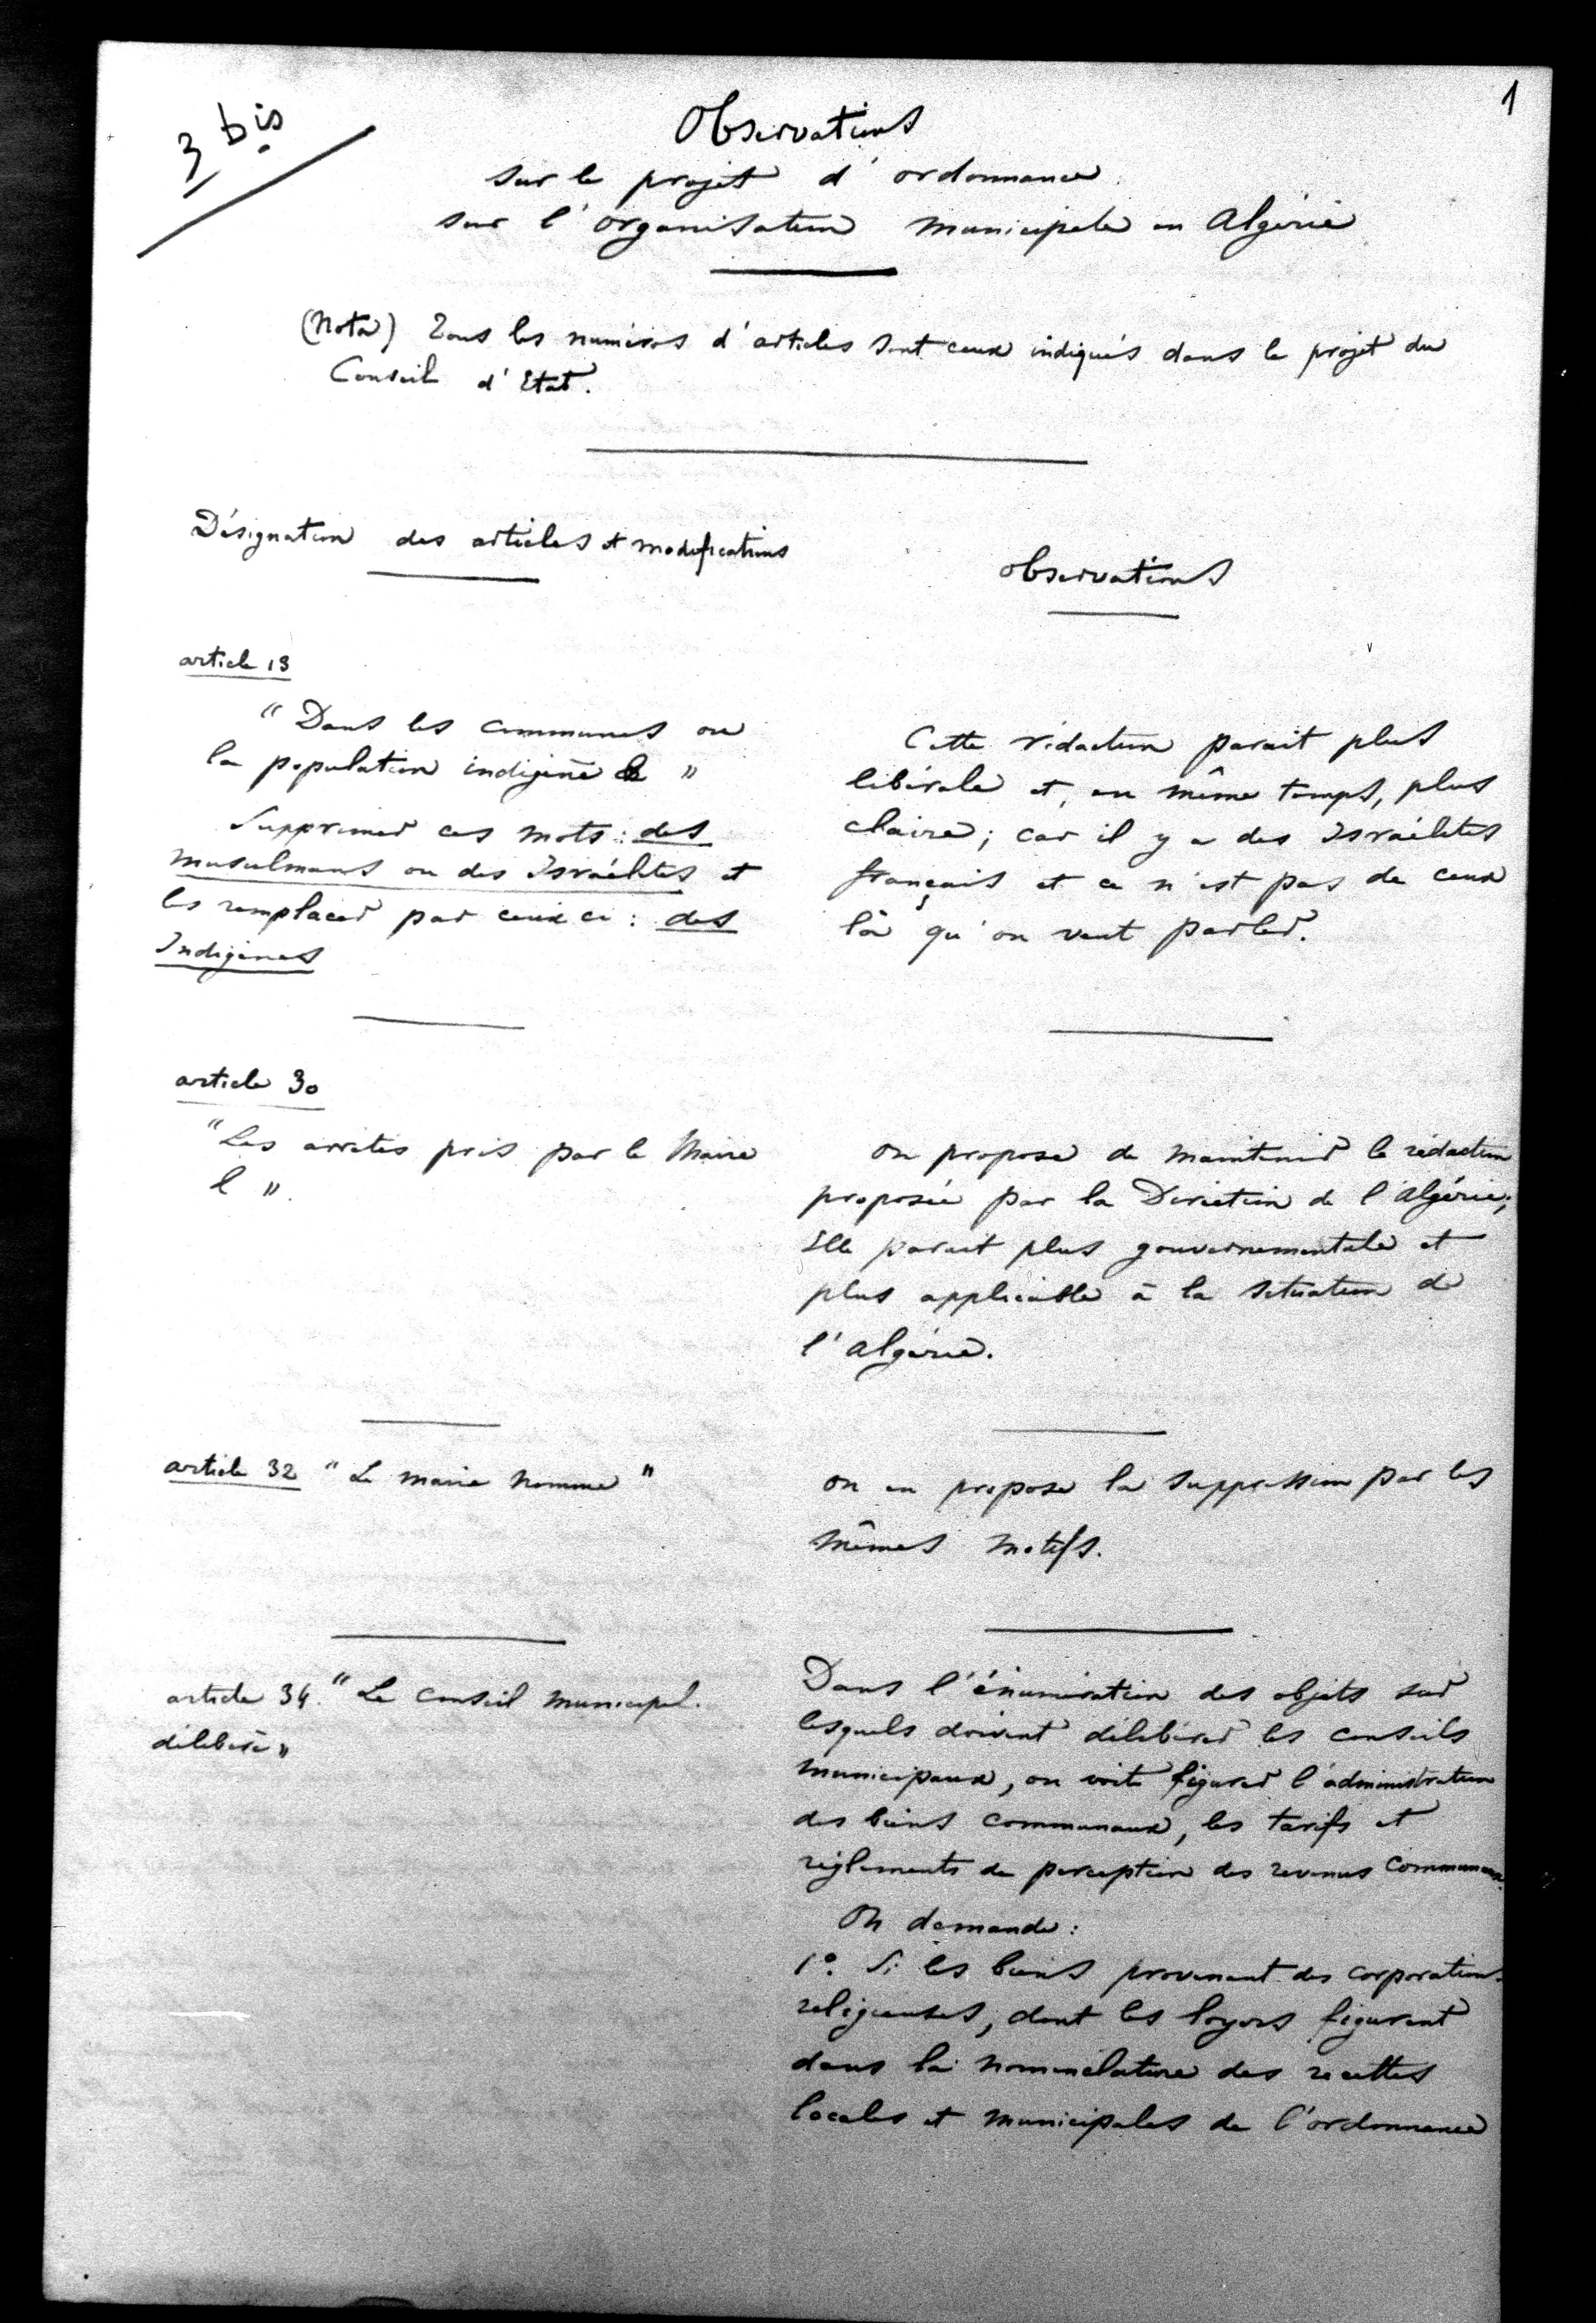 1
3 bis
Observations
sur le projet d'ordonnance
sur l'organisation municipale en Algérie
(Nota) Tous les numéros d'articles sont ceux indiqués dans le projet du
Conseil d'Etat.
Désignation des articles et modifications
Observations
article 13
"Dans les communes ou
la population indigène "
Supprimer ces mots : des
musulmans ou des Israélites et
les remplacer par ceux ci : des
Indigènes
Cette rédaction parait plus
libérale et, en même temps, plus
claire; car il y a des Israélites
français et ce n'est pas de ceux
là qu'on veut parler.
article 30
"Les arrêtés pris par le Maire
l ".
on propose de maintenir la rédaction
proposée par la Direction de l'Algérie;
Elle parait plus gouvernementale et
plus applicable à la situation de
l'algérie.
article 32 "Le maire nomme"
on en propose la suppression par les
mêmes motifs.
article 34. "Le Conseil municipal.
délibère"
Dans l'énumération des objets sur
lesquels doivent délibérer les conseils
municipaux, on voit figurer l'administration
des biens communaux, les tarifs et
règlements de perception des revenus Communaux.
On demande :
1°. Si les biens provenant des corporations
religieuses, dont les loyers figurent
dans la nomenclature des recettes
locales et municipales de l'ordonnance